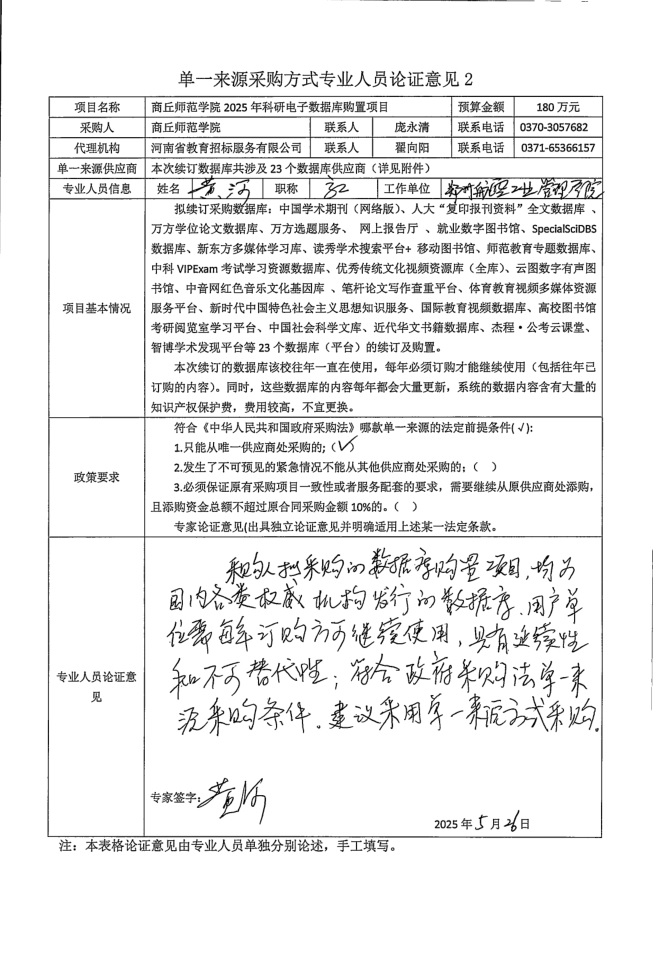 单一来源采购方式专业人员论证意见 2
项目名称 商丘师范学院 2025 年科研电子数据库购置项目 预算金额 180 万元
采购人 商丘师范学院 联系人 庞永清 联系电话 0370-3057682
代理机构 河南省教育招标服务有限公司 联系人 翟向阳 联系电话 0371-65366157
单一来源供应商 本次续订数据库共涉及 23 个数据库供应商（详见附件）
专业人员信息 姓名 黄河 职称 高工 工作单位 郑州航空工业管理学院
项目基本情况
拟续订采购数据库：中国学术期刊（网络版）、人大“复印报刊资料”全文数据库 、
万方学位论文数据库、万方选题服务、 网上报告厅 、就业数字图书馆、SpecialSciDBS
数据库、新东方多媒体学习库、读秀学术搜索平台+ 移动图书馆、师范教育专题数据库、
中科 VIPExam 考试学习资源数据库、优秀传统文化视频资源库（全库）、云图数字有声图
书馆、中音网红色音乐文化基因库 、笔杆论文写作查重平台、体育教育视频多媒体资源
服务平台、新时代中国特色社会主义思想知识服务、国际教育视频数据库、高校图书馆
考研阅览室学习平台、中国社会科学文库、近代华文书籍数据库、杰程•公考云课堂、
智博学术发现平台等 23 个数据库（平台）的续订及购置。
本次续订的数据库该校往年一直在使用，每年必须订购才能继续使用（包括往年已
订购的内容）。同时，这些数据库的内容每年都会大量更新，系统的数据内容含有大量的
知识产权保护费，费用较高，不宜更换。
政策要求
符合《中华人民共和国政府采购法》哪款单一来源的法定前提条件(√):
1.只能从唯一供应商处采购的;（√）
2.发生了不可预见的紧急情况不能从其他供应商处采购的；（ ）
3.必须保证原有采购项目一致性或者服务配套的要求，需要继续从原供应商处添购，
且添购资金总额不超过原合同采购金额 10%的。（ ）
专家论证意见(出具独立论证意见并明确适用上述某一法定条款。
专业人员论证意见
采购人拟采购的数据库购置项目，均为
国内各类权威机构发行的数据库，用户单
位需每年订购方可继续使用，具有延续性
和不可替代性；符合政府采购法单一来
源采购条件。建议采用单一来源方式采购。
专家签字：黄河
2025 年 5 月 26 日
注：本表格论证意见由专业人员单独分别论述，手工填写。